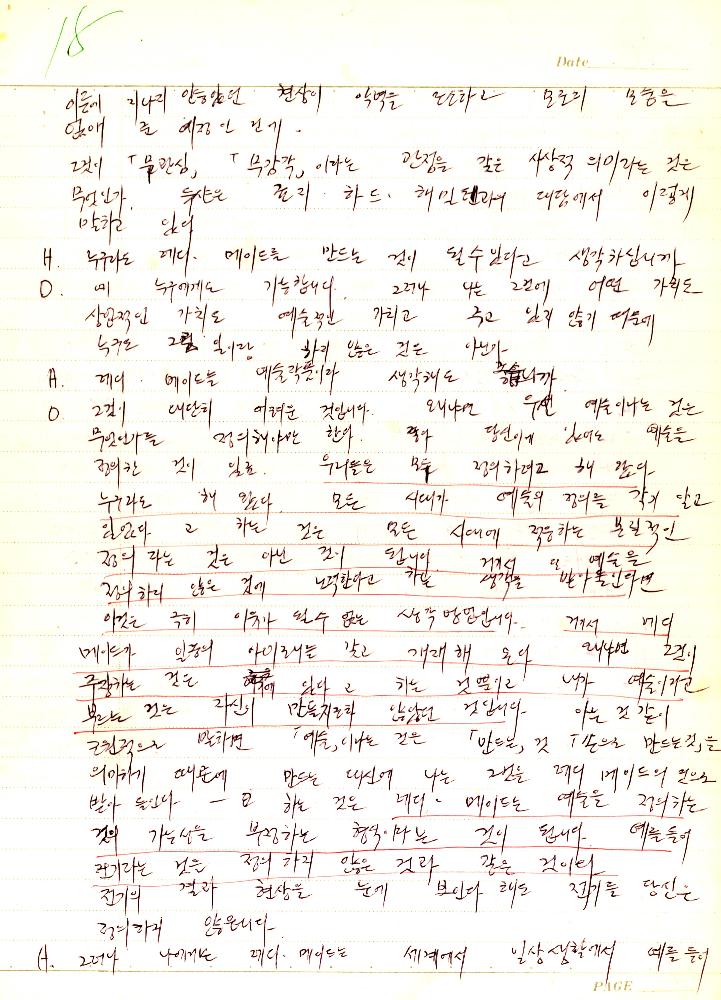 18
Date
이름에 지나지 않았던 현상이 악벽을 도모하고 모로의 모습을
없애 준 예정인 건가.
그것이 「무관심」 「무감각」이라는 관점을 갖은 사상적 의미라는 것은
무엇인가. 듀샹은 죤리·하드·해밀턴과의 대담에서 이렇게
말하고 있다
H. 누구라도 레디·메이드를 만드는 것이 될 수 있다고 생각하십니까
D. 예 누구에게도 가능합니다. 그러나 나는 그것에 어떤 가치도
상업적인 가치도 예술적인 가치고 주고 있지 않기 때문에
누구도 그 일이랑 하지 않은 것은 아닌가.
H. 레디·메이드를 예술작품이라 생각해도 좋습니까
D. 그것이 대단히 어려운 것입니다. 왜냐면 우선 예술이라는 것은
무엇인가를 정의해야만 한다. 당연이게 있어도 예술을
정의한 것이 일로. 우리들은 모두 정의하려고 해 왔다
누구라도 해 왔다. 모든 시대가 예술의 정의를 각기 달고
있었다 고 하는 것은 모든 시대에 적응하는 본질적인
정의 라는 것은 아닌 것이 됩니다. 거기서 또 예술을
정의하지 않은 것에 노력한다고 하는 생각을 받아들인다면
이것은 극히 이유가 될 수 없는 생각 방법입니다. 거기서 레디
메이드가 일종의 아이러니를 갖고 개재해 온다 왜냐면 그것이
주장하는 것은 있다 고 하는 것뿐이고 내가 예술이라고
부르는 것은 자신이 만들지조차 않았던 것입니다. 아는 것 같이
근원적으로 말하면 「예술」이라는 것은 「만드는」 것 「손으로 만드는 것」을
의미하기 때문에 만드는 대신에 나는 그것을 레디 메이드의 것으로
받아 들인다 — 고 하는 것은 레디·메이드는 예술을 정의하는
것의 가능성을 부정하는 형식이라는 것이 됩니다. 예를들어
전기라는 것은 정의 하지 않은 것과 같은 것이다
전기의 결과 현상을 눈에 보인다 해도 전기를 당신은
정의하지 않습니다.
H. 그러나 나에게는 레디·메이드는 세계에서 일상생활에서 예를 들어
PAGE